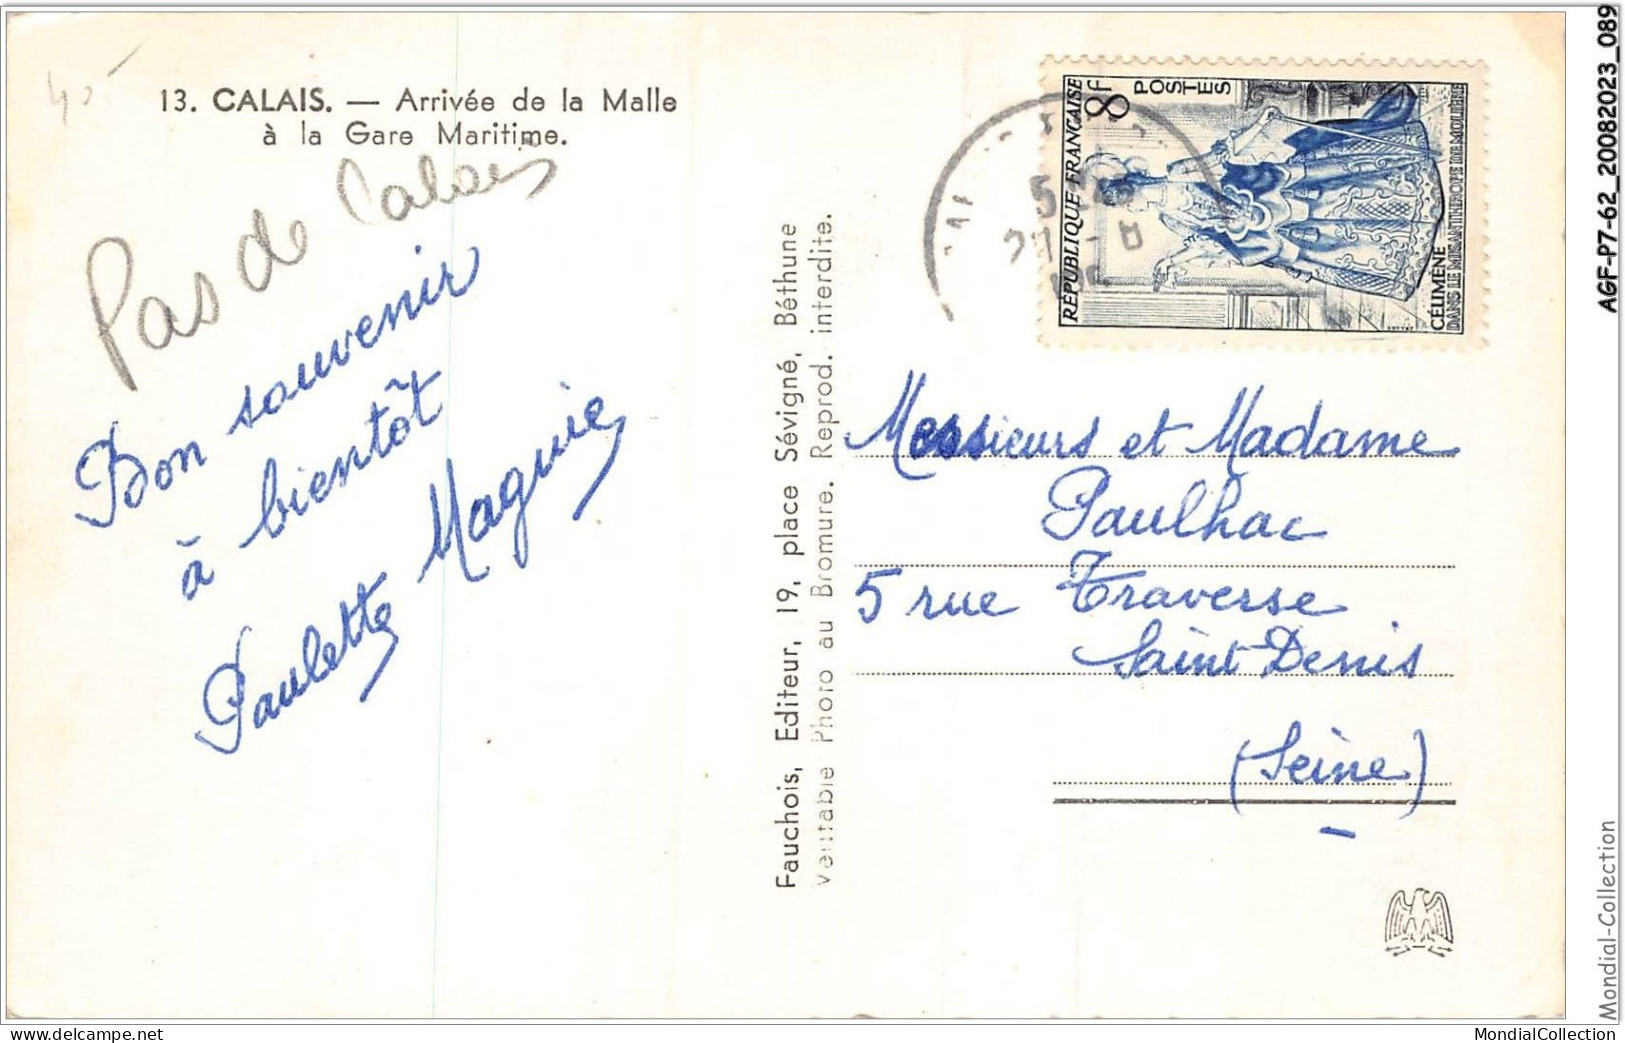 40
13. CALAIS. — Arrivée de la Malle
à la Gare Maritime.
Pas de Calais
Bon souvenir
à bientôt
Paulette Maguie
Fauchois, Editeur, 19, place Sévigné, Béthune
Véritable Photo au Bromure. Reprod. interdite.
RÉPUBLIQUE FRANÇAISE
8F
POSTES
CÉLIMÈNE
DANS LE MISANTHROPE DE MOLIÈRE
Messieurs et Madame
Paulhac
5 rue Traverse
Saint Denis
(Seine)
AGF-P7-62_20082023_089
Mondial-Collection
www.delcampe.net
MondialCollection